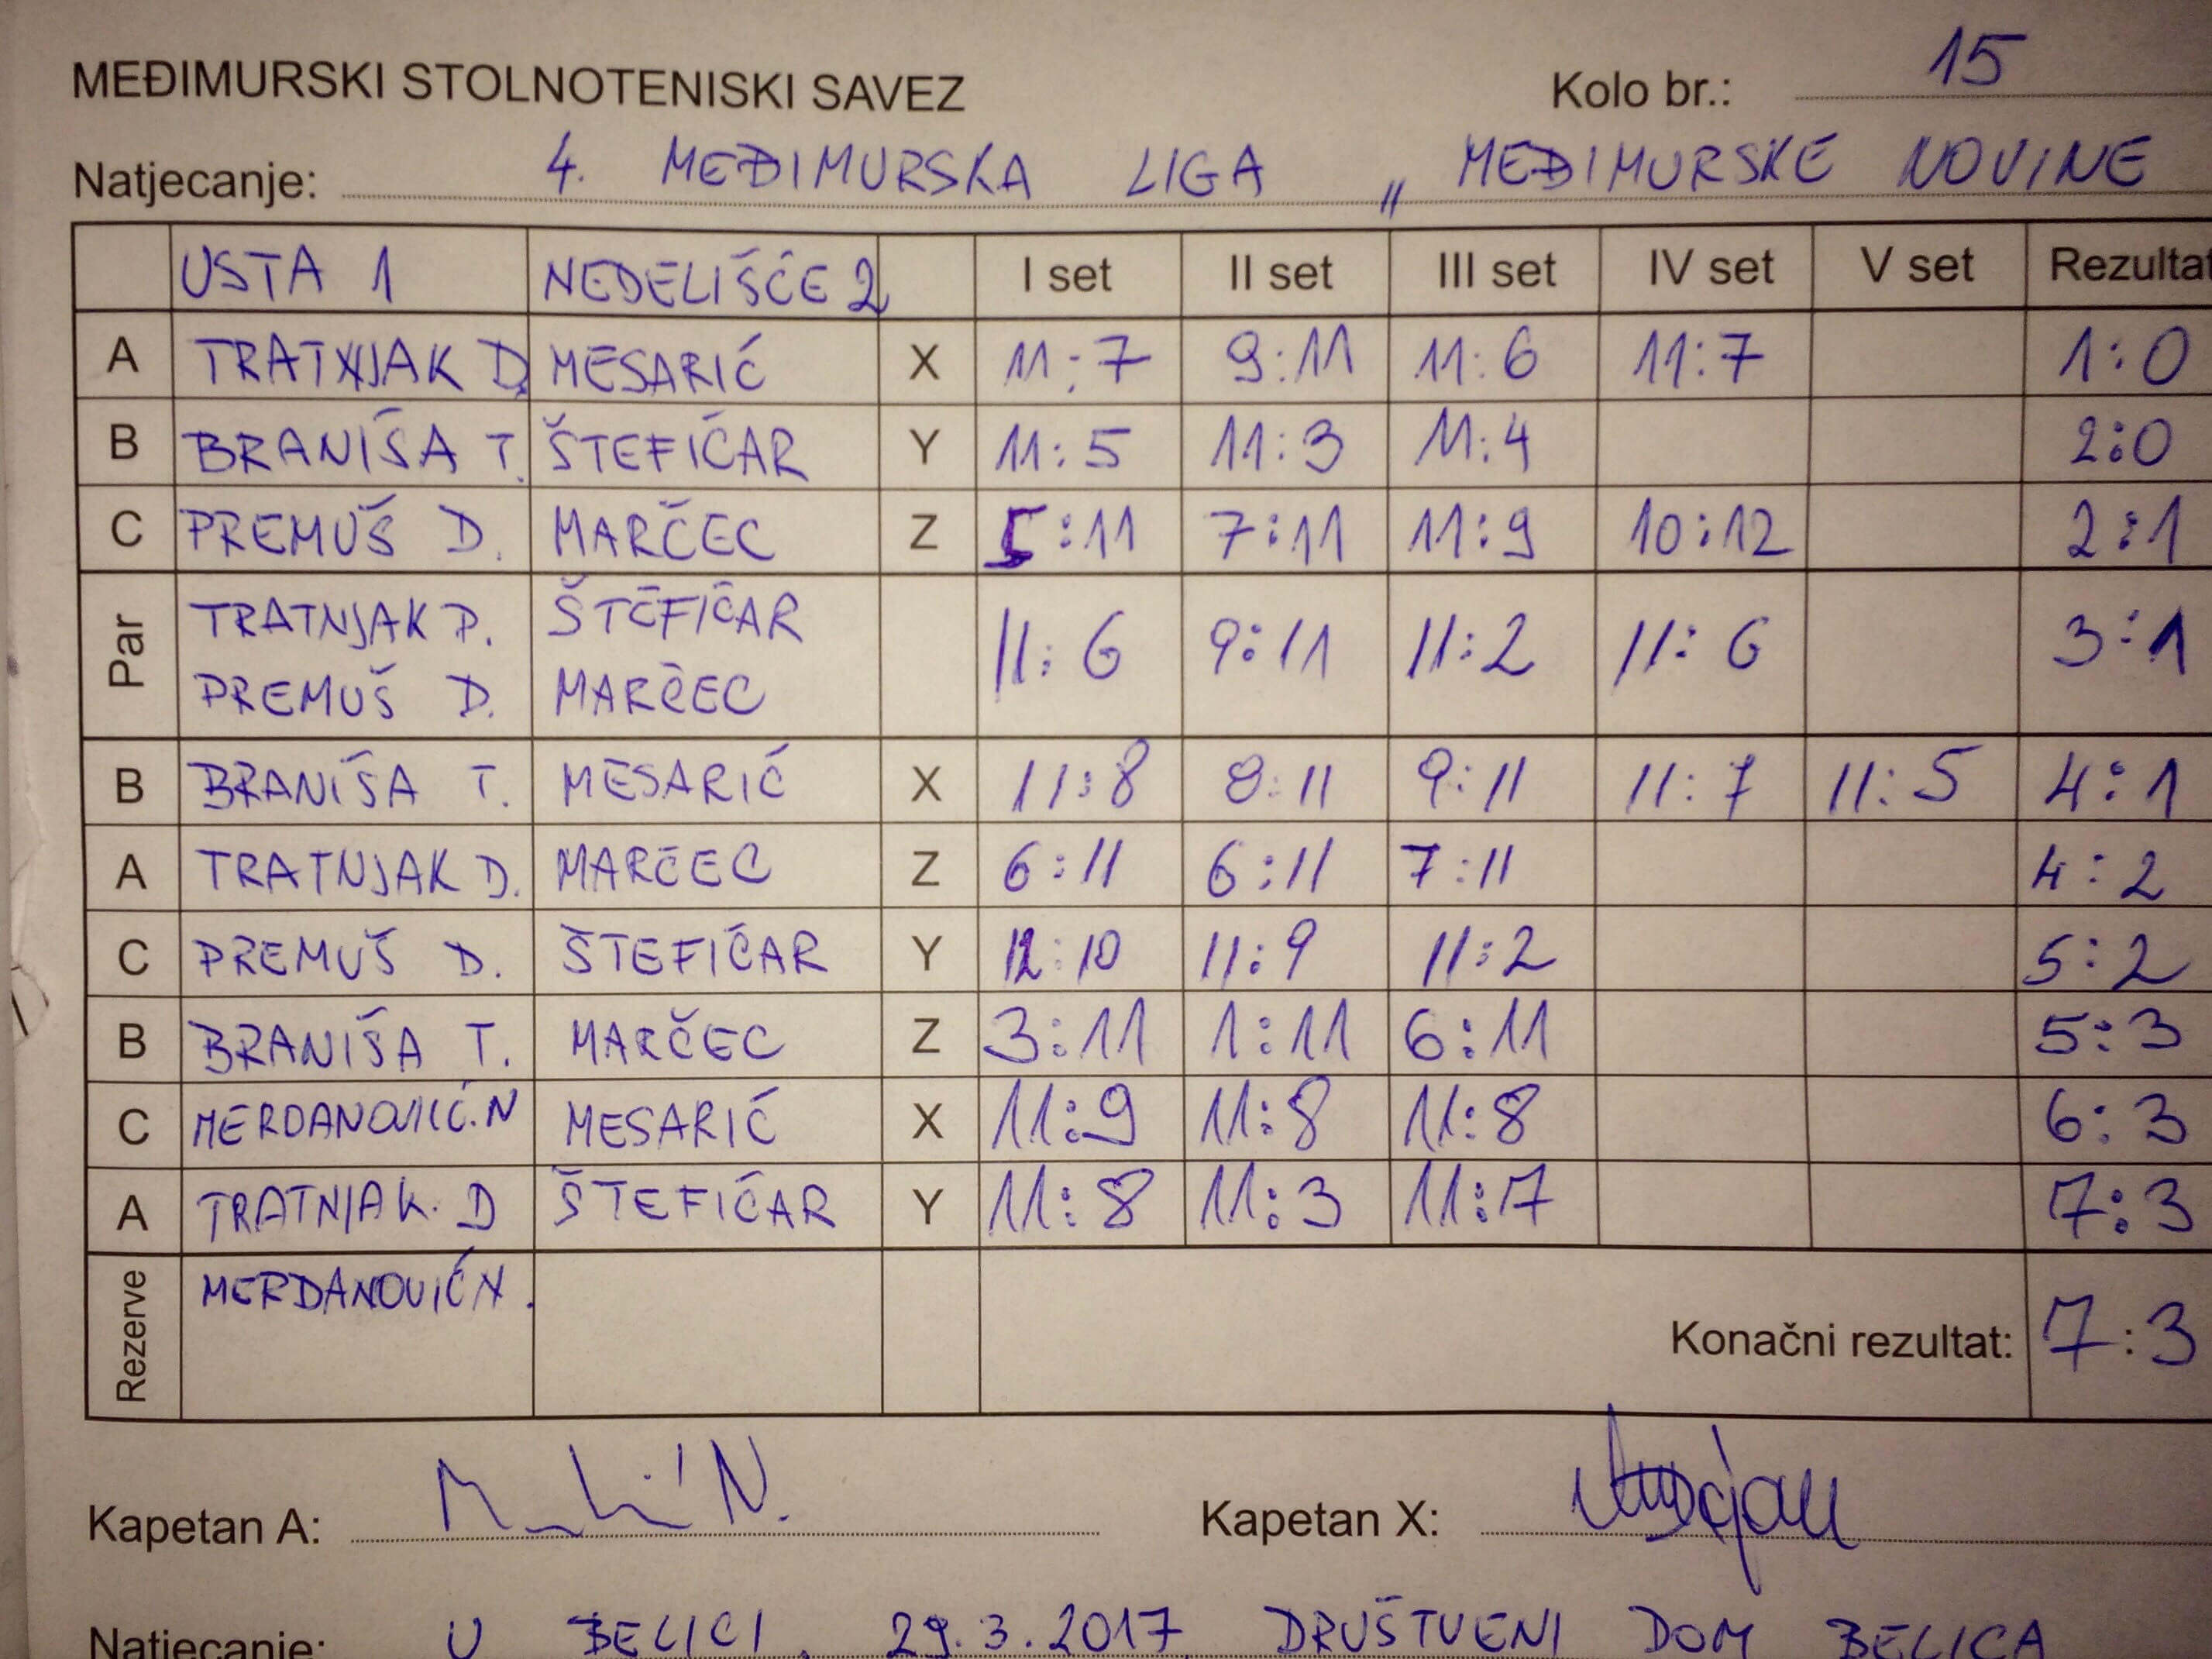 MEĐIMURSKI STOLNOTENISKI SAVEZ Kolo br.: 15
Natjecanje: 4. MEĐIMURSKA LIGA „ MEĐIMURSKE NOVINE
USTA 1 NEDELIŠĆE 2 I set II set III set IV set V set Rezultat
A TRATNJAK D. MESARIĆ X 11:7 9:11 11:6 11:7 1:0
B BRANIŠA T. ŠTEFIČAR Y 11:5 11:3 11:4 2:0
C PREMUŠ D. MARČEC Z 5:11 7:11 11:9 10:12 2:1
Par TRATNJAK D. ŠTEFIČAR 11:6 9:11 11:2 11:6 3:1
PREMUŠ D. MARČEC
B BRANIŠA T. MESARIĆ X 11:8 8:11 9:11 11:7 11:5 4:1
A TRATNJAK D. MARČEC Z 6:11 6:11 7:11 4:2
C PREMUŠ D. ŠTEFIČAR Y 12:10 11:9 11:2 5:2
B BRANIŠA T. MARČEC Z 3:11 1:11 6:11 5:3
C MERDANOVIĆ.N MESARIĆ X 11:9 11:8 11:8 6:3
A TRATNJAK. D ŠTEFIČAR Y 11:8 11:3 11:7 7:3
Rezerve MERDANOVIĆ N.
Konačni rezultat: 7:3
Kapetan A: Kapetan X:
Natjecanje: U BELICI, 29.3.2017. DRUŠTVENI DOM BELICA